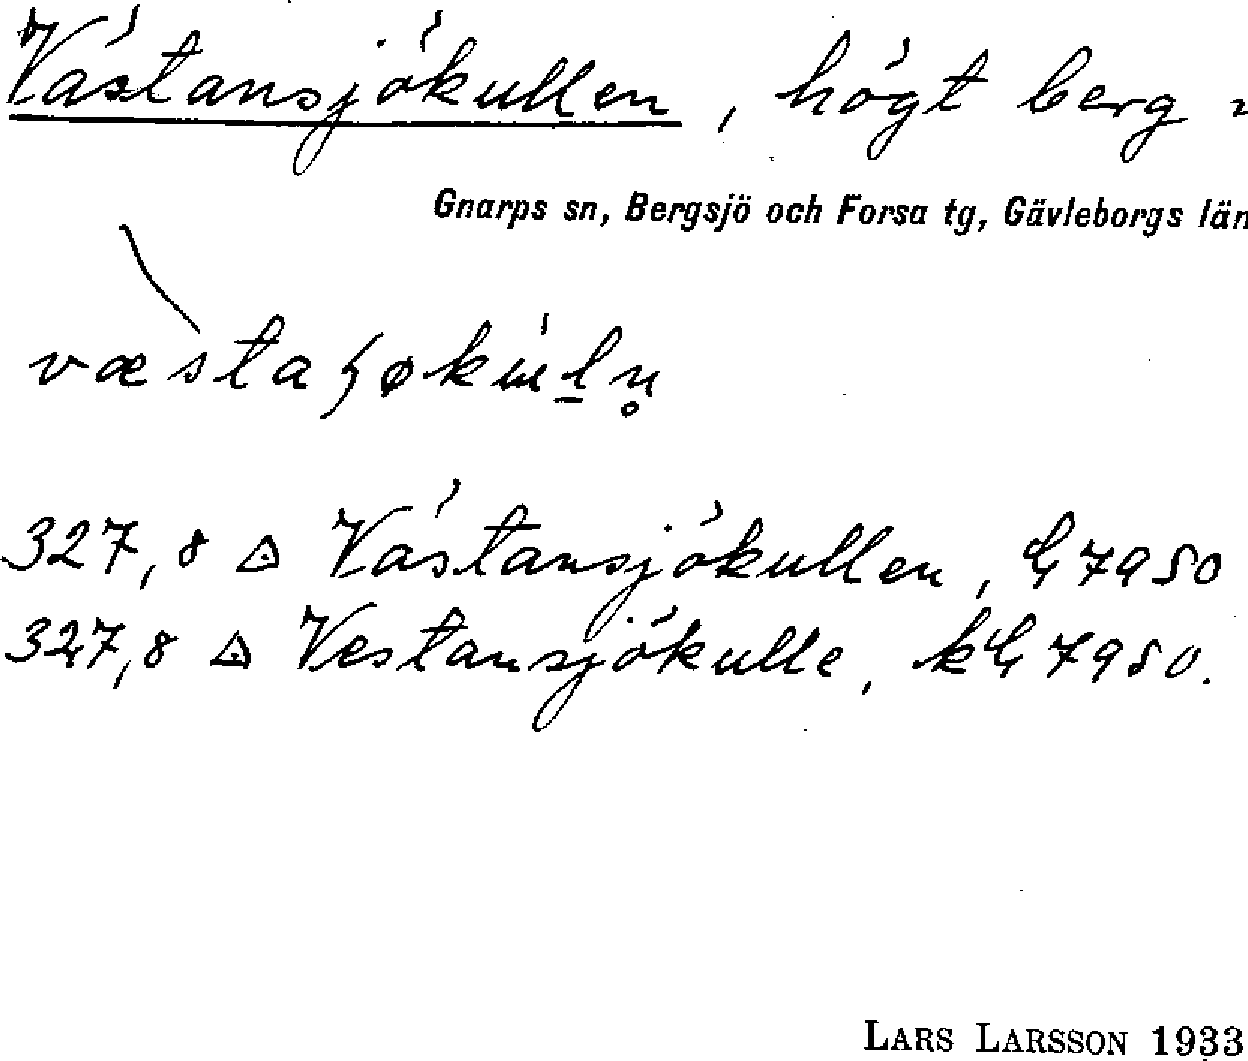 Västansjökullen, högt berg
Gnarps sn, Bergsjö och Forsa tg, Gävleborgs län
327,8 △ Västansjökullen, 7950
327,8 △ Vestansjökulle, 7950.
LARS LARSSON 1933